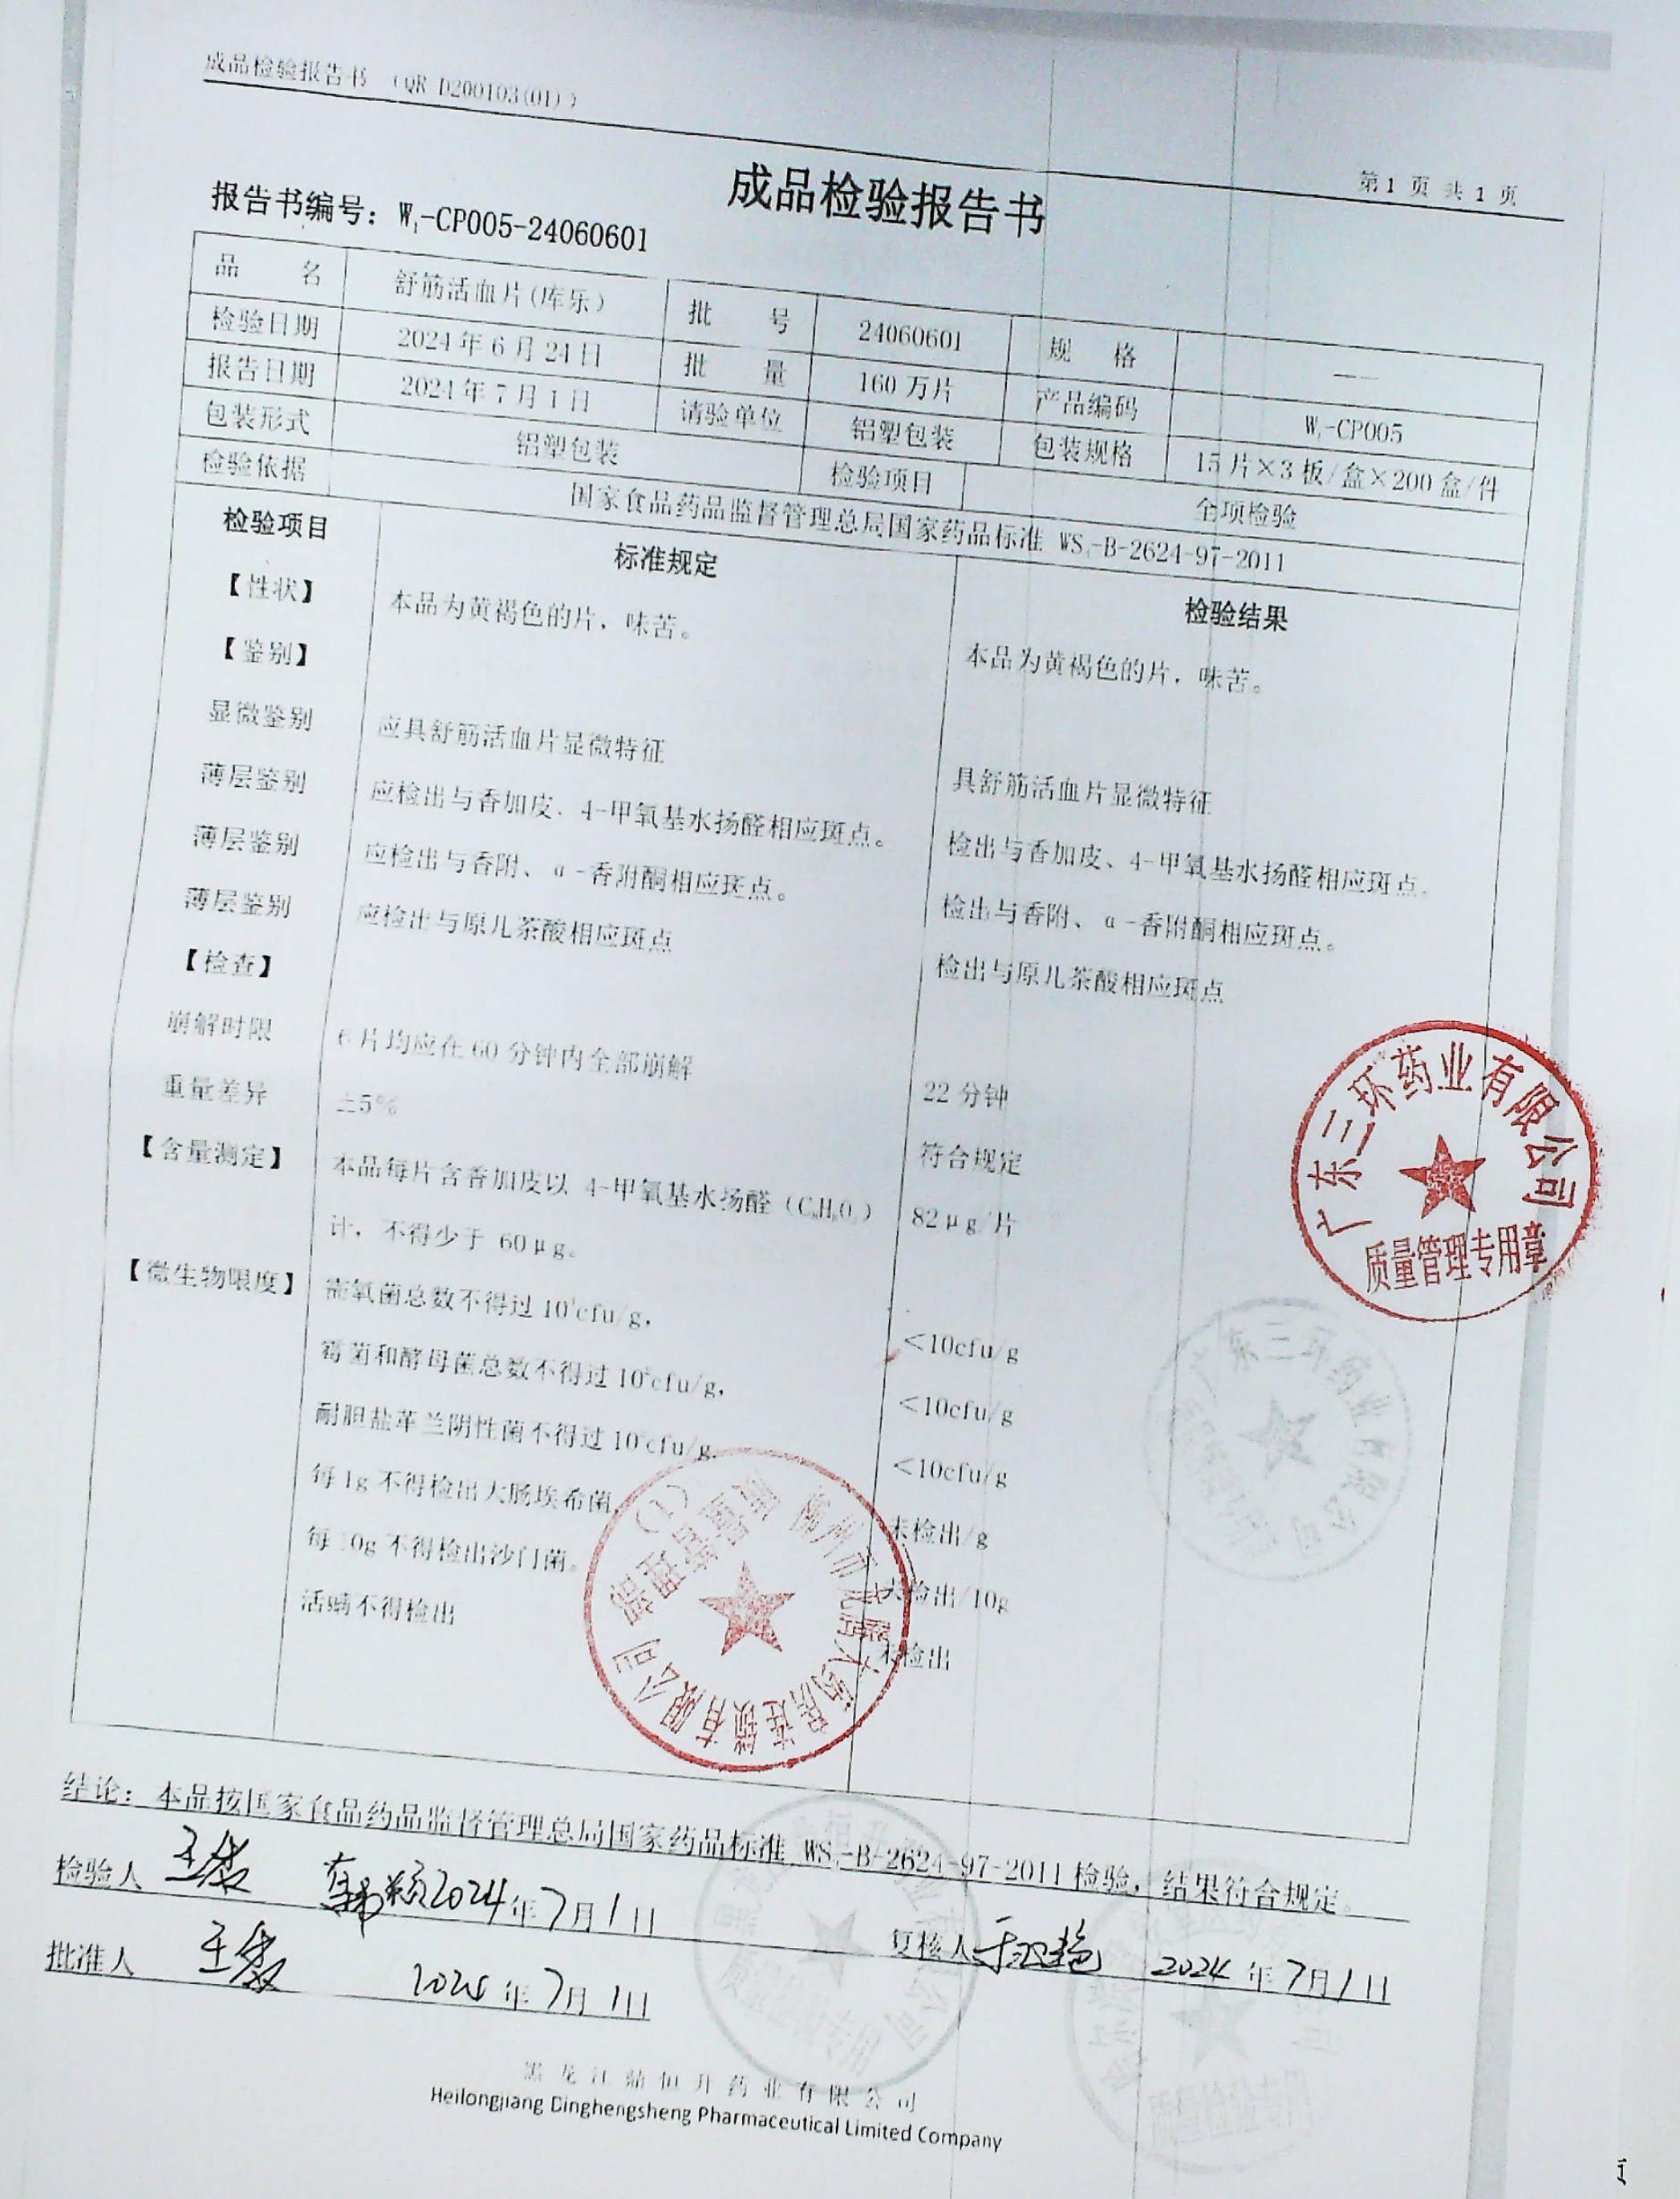 成品检验报告书 (QR D200103(01))
第 1 页 共 1 页
成品检验报告书
报告书编号: W₁-CP005-24060601
品 名 舒筋活血片(库乐) 批 号 24060601 规 格 ——
检验日期 2024 年 6 月 24 日 批 量 160 万片 产品编码 W₁-CP005
报告日期 2024 年 7 月 1 日 请验单位 铝塑包装 包装规格 15 片×3 板/盒×200 盒/件
包装形式 铝塑包装 检验项目 全项检验
检验依据 国家食品药品监督管理总局国家药品标准 WS₃-B-2624-97-2011
检验项目 标准规定 检验结果
【性状】 本品为黄褐色的片，味苦。 本品为黄褐色的片，味苦。
【鉴别】
显微鉴别 应具舒筋活血片显微特征 具舒筋活血片显微特征
薄层鉴别 应检出与香加皮、4-甲氧基水扬醛相应斑点。 检出与香加皮、4-甲氧基水扬醛相应斑点。
薄层鉴别 应检出与香附、α-香附酮相应斑点。 检出与香附、α-香附酮相应斑点。
薄层鉴别 应检出与原儿茶酸相应斑点 检出与原儿茶酸相应斑点
【检查】
崩解时限 6 片均应在 60 分钟内全部崩解 22 分钟
重量差异 ±5% 符合规定
【含量测定】 本品每片含香加皮以 4-甲氧基水扬醛 (C₈H₈O₃) 82μg/片
计，不得少于 60μg。
【微生物限度】 需氧菌总数不得过 10³cfu/g， <10cfu/g
霉菌和酵母菌总数不得过 10²cfu/g， <10cfu/g
耐胆盐革兰阴性菌不得过 10²cfu/g， <10cfu/g
每 1g 不得检出大肠埃希菌， 未检出/g
每 10g 不得检出沙门菌。 未检出/10g
活螨不得检出 未检出
广东三环药业有限公司
质量管理专用章
广东三环药业有限公司
大药房连锁有限公司
质量管理部
(1)
结论: 本品按国家食品药品监督管理总局国家药品标准 WS₃-B-2624-97-2011 检验，结果符合规定。
检验人 2024 年 7 月 1 日 复核人 2024 年 7 月 1 日
批准人 2024 年 7 月 1 日
黑龙江鼎恒升药业有限公司
Heilongjiang Dinghengsheng Pharmaceutical Limited Company